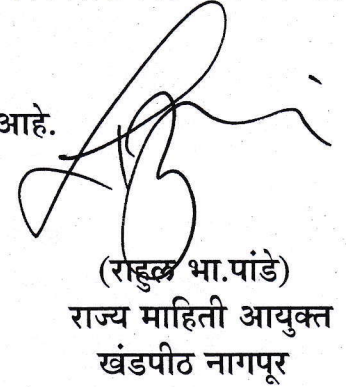 आहे.
(राहुल भा.पांडे)
राज्य माहिती आयुक्त
खंडपीठ नागपूर